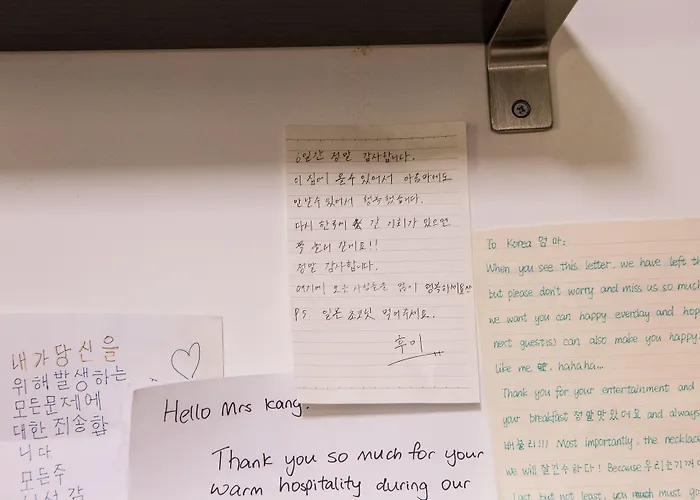 6일간 정말 감사합니다.
이 집에 올수 있어서 아줌마에도
만날수 있어서 행복했습니다.
다시 한국에 갈 기회가 있으면
꼭 놀러 갈게요!!
정말 감사합니다.
여기에 모든 사람들은 많이 행복하세요
PS. 일본 초코릿 먹어주세요.
후미
내가당신을
위해발생하는
모든문제에
대한 죄송합
니다
모든주
Hello Mrs Kang.
Thank you so much for your
warm hospitality during our
To Korea 엄마:
When you see this letter, we have left th
but please don't worry and miss us so much
we want you can happy everday and hop
next guest(s) can also make you happy
like me. hahaha...
Thank you for your entertainment and
your breakfast 정말맛있어요 and always
Most importantly, the necklace
we will 잘간수하다! Because 우리는
last but not least, you much must